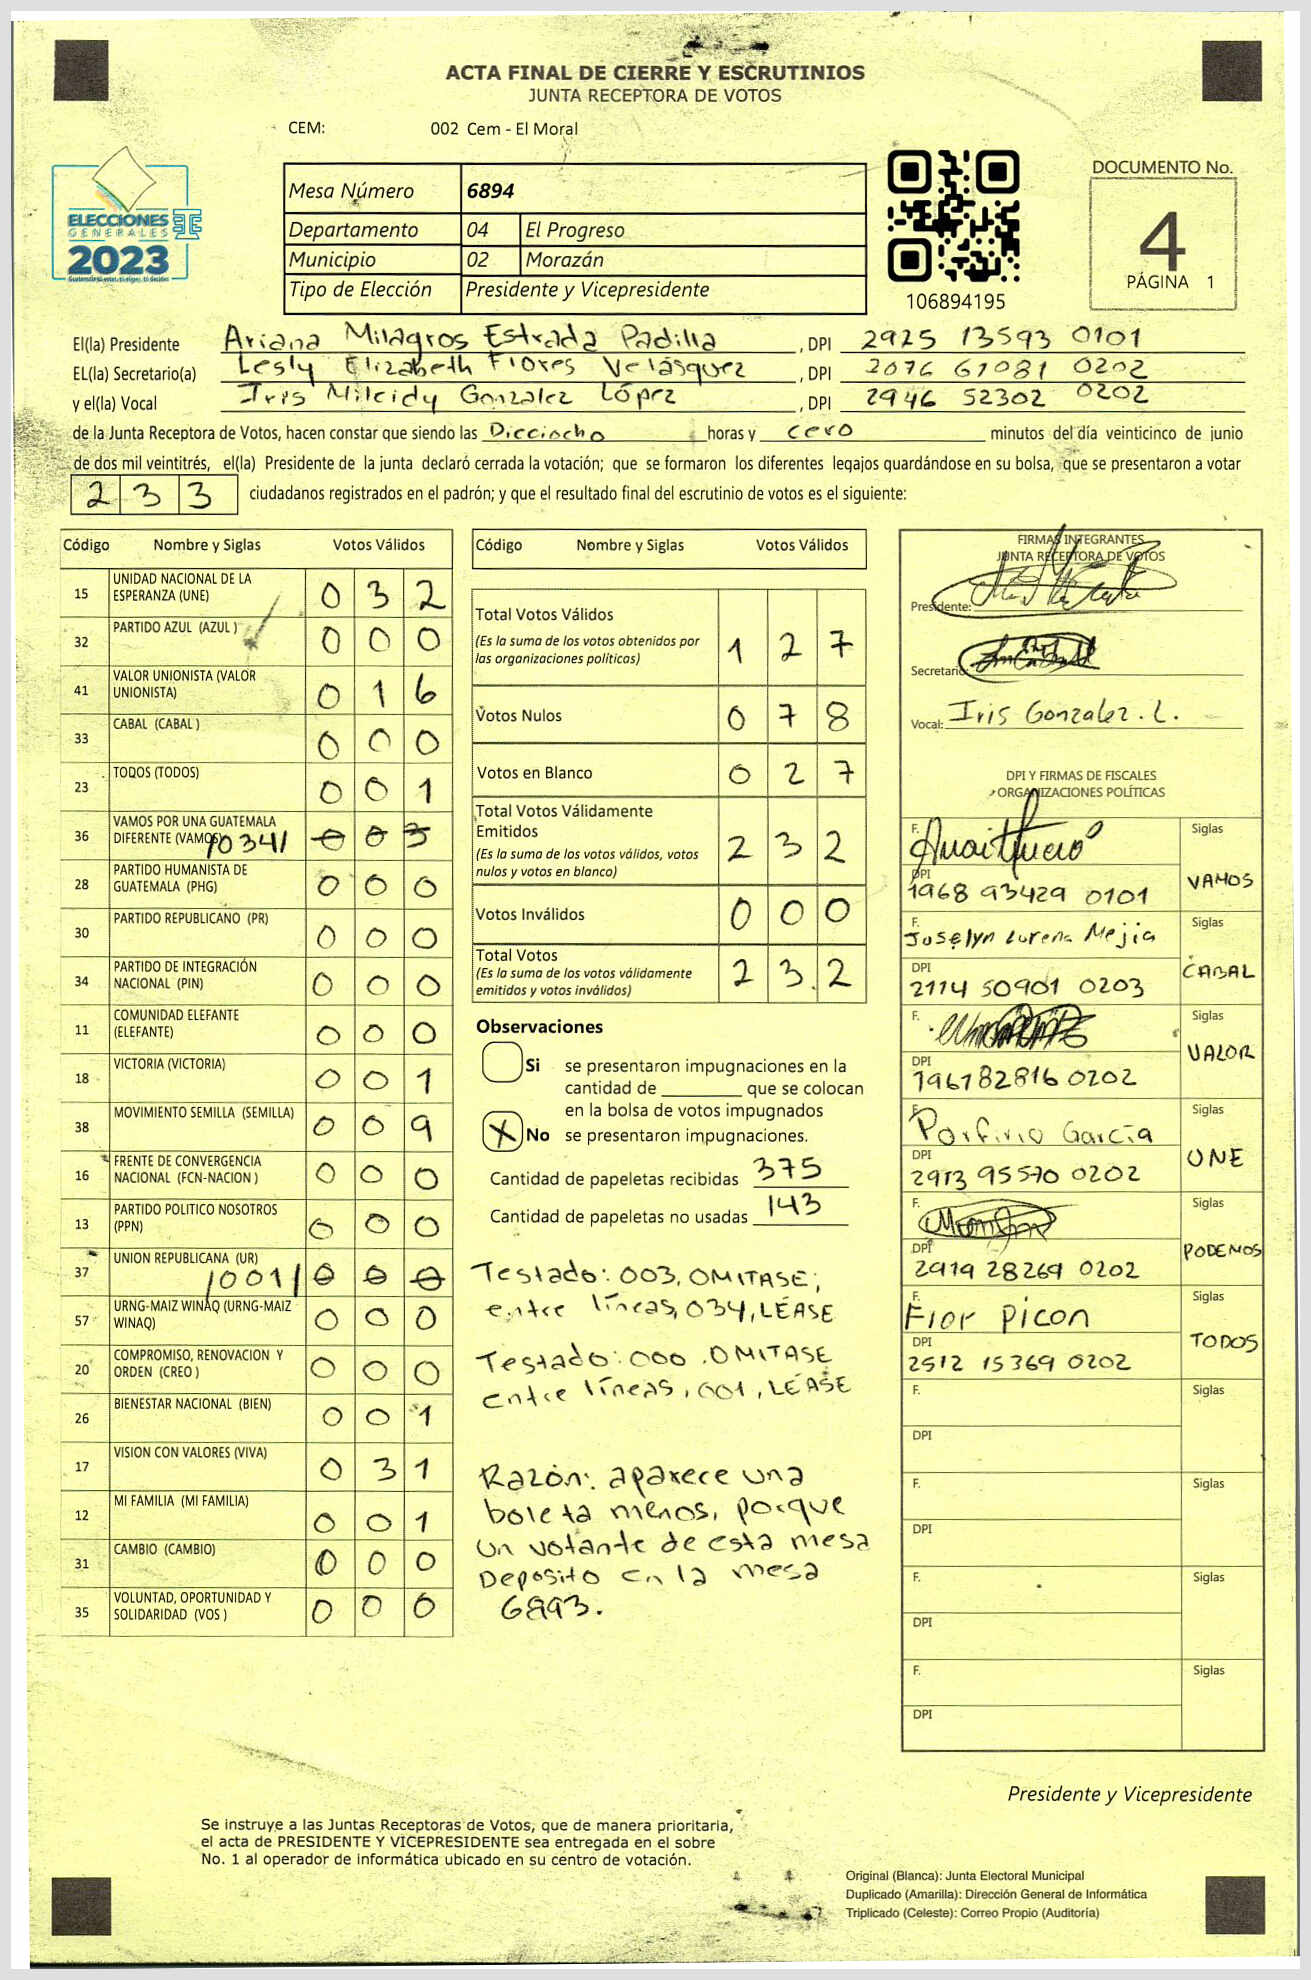 ACTA FINAL DE CIERRE Y ESCRUTINIOS
JUNTA RECEPTORA DE VOTOS
CEM: 002 Cem - El Moral
ELECCIONES
GENERALES
2023
Mesa Número 6894
Departamento 04 El Progreso
Municipio 02 Morazán
Tipo de Elección Presidente y Vicepresidente
106894195
DOCUMENTO No.
4
PÁGINA 1
El(la) Presidente Ariana Milagros Estrada Padilla, DPI 2925 13593 0101
EL(la) Secretario(a) Lesly Elizabeth Flores Velásquez, DPI 2076 67081 0202
y el(la) Vocal Iris Milcidy Gonzalez López, DPI 2946 52302 0202
de la Junta Receptora de Votos, hacen constar que siendo las Dieciocho horas y cero minutos del día veinticinco de junio
de dos mil veintitrés, el(la) Presidente de la junta declaró cerrada la votación; que se formaron los diferentes legajos guardándose en su bolsa, que se presentaron a votar
233 ciudadanos registrados en el padrón; y que el resultado final del escrutinio de votos es el siguiente:
Código Nombre y Siglas Votos Válidos
15 UNIDAD NACIONAL DE LA ESPERANZA (UNE) 0 3 2
32 PARTIDO AZUL (AZUL ) 0 0 0
41 VALOR UNIONISTA (VALOR UNIONISTA) 0 1 6
33 CABAL (CABAL ) 0 0 0
23 TODOS (TODOS) 0 0 1
36 VAMOS POR UNA GUATEMALA DIFERENTE (VAMOS) /034/ 0 0 3
28 PARTIDO HUMANISTA DE GUATEMALA (PHG) 0 0 0
30 PARTIDO REPUBLICANO (PR) 0 0 0
34 PARTIDO DE INTEGRACIÓN NACIONAL (PIN) 0 0 0
11 COMUNIDAD ELEFANTE (ELEFANTE) 0 0 0
18 VICTORIA (VICTORIA) 0 0 1
38 MOVIMIENTO SEMILLA (SEMILLA) 0 0 9
16 FRENTE DE CONVERGENCIA NACIONAL (FCN-NACION ) 0 0 0
13 PARTIDO POLITICO NOSOTROS (PPN) 0 0 0
37 UNION REPUBLICANA (UR) /001/ 0 0 0
57 URNG-MAIZ WINAQ (URNG-MAIZ WINAQ) 0 0 0
20 COMPROMISO, RENOVACION Y ORDEN (CREO ) 0 0 0
26 BIENESTAR NACIONAL (BIEN) 0 0 1
17 VISION CON VALORES (VIVA) 0 3 1
12 MI FAMILIA (MI FAMILIA) 0 0 1
31 CAMBIO (CAMBIO) 0 0 0
35 VOLUNTAD, OPORTUNIDAD Y SOLIDARIDAD (VOS ) 0 0 0
Código Nombre y Siglas Votos Válidos
Total Votos Válidos 1 2 7
(Es la suma de los votos obtenidos por
las organizaciones políticas)
Votos Nulos 0 7 8
Votos en Blanco 0 2 7
Total Votos Válidamente
Emitidos 2 3 2
(Es la suma de los votos válidos, votos
nulos y votos en blanco)
Votos Inválidos 0 0 0
Total Votos 2 3 2
(Es la suma de los votos válidamente
emitidos y votos inválidos)
Observaciones
Si se presentaron impugnaciones en la
cantidad de ________ que se colocan
en la bolsa de votos impugnados
X No se presentaron impugnaciones.
Cantidad de papeletas recibidas 375
Cantidad de papeletas no usadas 143
Testado: 003, OMITASE;
entre líneas, 034, LÉASE
Testado: 000. OMITASE
entre líneas, 001, LÉASE
Razón: aparece una
boleta menos, porque
un votante de esta mesa
Deposito en la mesa
6893.
FIRMAS INTEGRANTES
JUNTA RECEPTORA DE VOTOS
Presidente:
Secretario:
Vocal: Iris Gonzalez. L.
DPI Y FIRMAS DE FISCALES
ORGANIZACIONES POLÍTICAS
F. Siglas
DPI 1968 93429 0101 VAMOS
F. Joselyn Lorena Mejia Siglas
DPI 2114 50901 0203 CABAL
F. Siglas
DPI 1967 82816 0202 VALOR
F. Porfirio García Siglas
DPI 2913 95570 0202 UNE
F. Siglas
DPI 2919 28269 0202 PODEMOS
F. Flor Picon Siglas
DPI 2512 15369 0202 TODOS
F. Siglas
DPI
F. Siglas
DPI
F. Siglas
DPI
F. Siglas
DPI
Presidente y Vicepresidente
Se instruye a las Juntas Receptoras de Votos, que de manera prioritaria,
el acta de PRESIDENTE Y VICEPRESIDENTE sea entregada en el sobre
No. 1 al operador de informática ubicado en su centro de votación.
Original (Blanca): Junta Electoral Municipal
Duplicado (Amarilla): Dirección General de Informática
Triplicado (Celeste): Correo Propio (Auditoría)